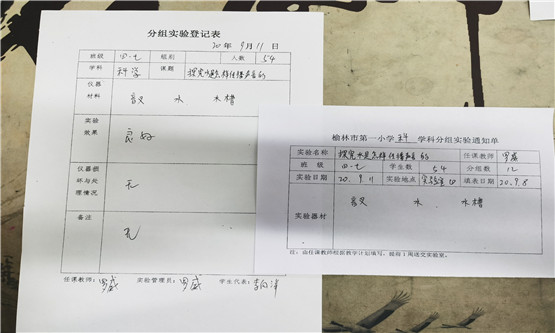 分组实验登记表
20年9月11日
班级 四·七 组别 人数 54
学科 科学 课题 探究水是怎样传播声音的
仪器材料 音叉 水 水槽
实验效果 良好
仪器损坏与处理情况 无
备注 无
任课教师：罗威 实验管理员：罗威 学生代表：
榆林市第一小学科学学科分组实验通知单
实验名称 探究水是怎样传播声音的 任课教师 罗威
班级 四·七 学生数 54 分组数 12
实验日期 20.9.11 实验地点 实验室四 填表日期 20.9.8
实验器材 音叉 水 水槽
注：由任课教师根据教学计划填写，提前1周送交实验室。